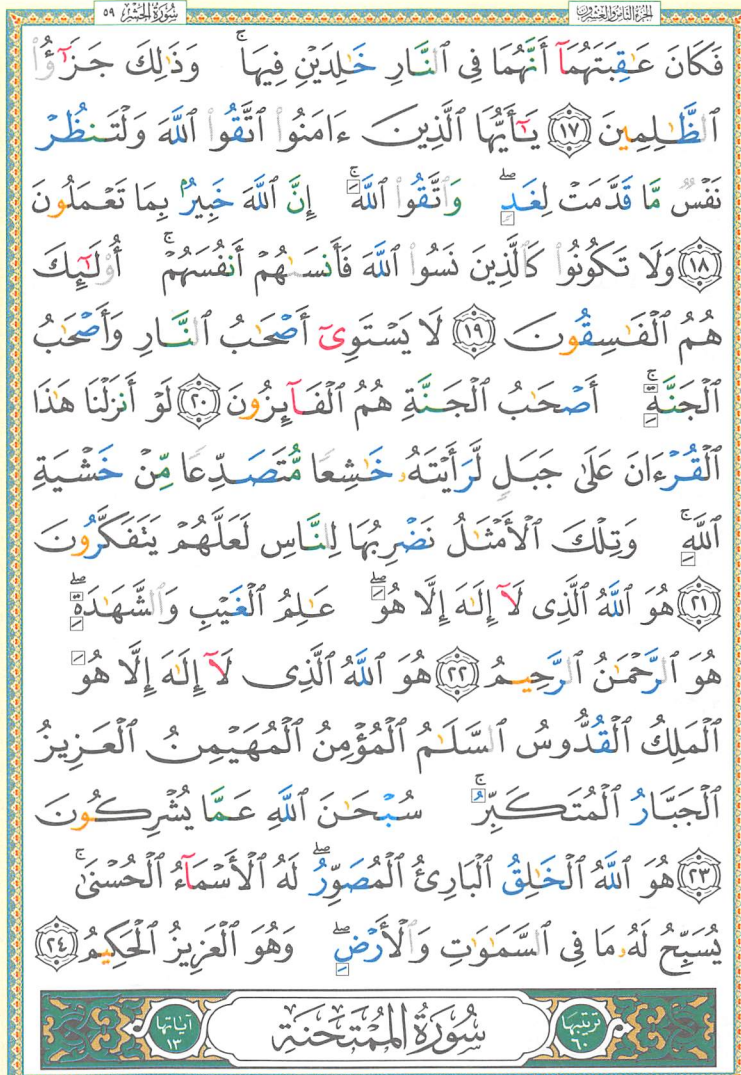 الجزء الثامن والعشرون
سُورَةُ الحَشْرِ ٥٩
فَكَانَ عَـٰقِبَتَهُمَآ أَنَّهُمَا فِى ٱلنَّارِ خَـٰلِدَيْنِ فِيهَا ۚ وَذَٰلِكَ جَزَٰٓؤُا۟
ٱلظَّـٰلِمِينَ ١٧ يَـٰٓأَيُّهَا ٱلَّذِينَ ءَامَنُوا۟ ٱتَّقُوا۟ ٱللَّهَ وَلْتَنظُرْ
نَفْسٌ مَّا قَدَّمَتْ لِغَدٍ ۖ وَٱتَّقُوا۟ ٱللَّهَ ۚ إِنَّ ٱللَّهَ خَبِيرٌۢ بِمَا تَعْمَلُونَ
١٨ وَلَا تَكُونُوا۟ كَٱلَّذِينَ نَسُوا۟ ٱللَّهَ فَأَنسَىٰهُمْ أَنفُسَهُمْ ۚ أُو۟لَـٰٓئِكَ
هُمُ ٱلْفَـٰسِقُونَ ١٩ لَا يَسْتَوِىٓ أَصْحَـٰبُ ٱلنَّارِ وَأَصْحَـٰبُ
ٱلْجَنَّةِ ۚ أَصْحَـٰبُ ٱلْجَنَّةِ هُمُ ٱلْفَآئِزُونَ ٢٠ لَوْ أَنزَلْنَا هَـٰذَا
ٱلْقُرْءَانَ عَلَىٰ جَبَلٍ لَّرَأَيْتَهُۥ خَـٰشِعًا مُّتَصَدِّعًا مِّنْ خَشْيَةِ
ٱللَّهِ ۚ وَتِلْكَ ٱلْأَمْثَـٰلُ نَضْرِبُهَا لِلنَّاسِ لَعَلَّهُمْ يَتَفَكَّرُونَ
٢١ هُوَ ٱللَّهُ ٱلَّذِى لَآ إِلَـٰهَ إِلَّا هُوَ ۖ عَـٰلِمُ ٱلْغَيْبِ وَٱلشَّهَـٰدَةِ ۖ
هُوَ ٱلرَّحْمَـٰنُ ٱلرَّحِيمُ ٢٢ هُوَ ٱللَّهُ ٱلَّذِى لَآ إِلَـٰهَ إِلَّا هُوَ
ٱلْمَلِكُ ٱلْقُدُّوسُ ٱلسَّلَـٰمُ ٱلْمُؤْمِنُ ٱلْمُهَيْمِنُ ٱلْعَزِيزُ
ٱلْجَبَّارُ ٱلْمُتَكَبِّرُ ۚ سُبْحَـٰنَ ٱللَّهِ عَمَّا يُشْرِكُونَ
٢٣ هُوَ ٱللَّهُ ٱلْخَـٰلِقُ ٱلْبَارِئُ ٱلْمُصَوِّرُ ۖ لَهُ ٱلْأَسْمَآءُ ٱلْحُسْنَىٰ ۚ
يُسَبِّحُ لَهُۥ مَا فِى ٱلسَّمَـٰوَٰتِ وَٱلْأَرْضِ ۖ وَهُوَ ٱلْعَزِيزُ ٱلْحَكِيمُ ٢٤
ترتيبها ٦٠
سُورَةُ المُمْتَحنَةِ
آياتها ١٣